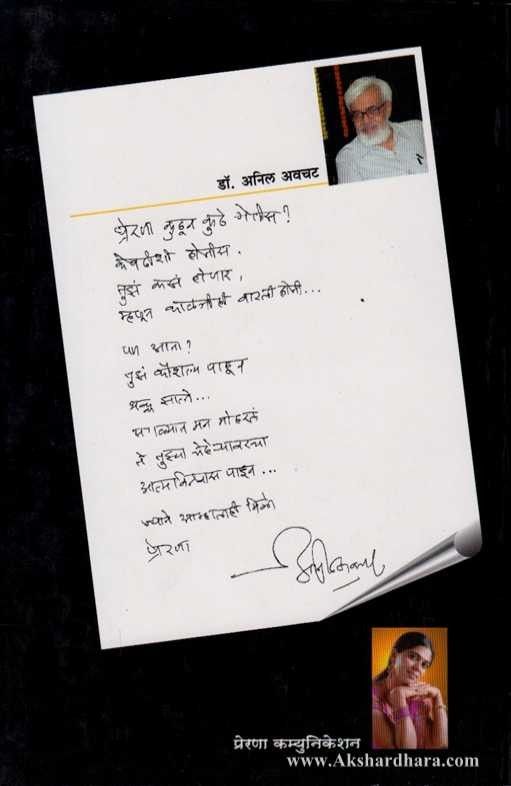 डॉ. अनिल अवचट
प्रेरणा कुठून कुठे गेलीस?
केवढीशी होतीस.
तुझं कसं होणार,
म्हणून काळजीही वाटली होती...
पण आता?
तुझं कौशल्य पाहून
थक्क झालो...
सगळ्यात मन मोहरलं
ते तुझ्या चेहेऱ्यावरचा
आत्मविश्वास पाहून...
ज्याने आम्हालाही मिळो
प्रेरणा
प्रेरणा कम्युनिकेशन
www.Akshardhara.com